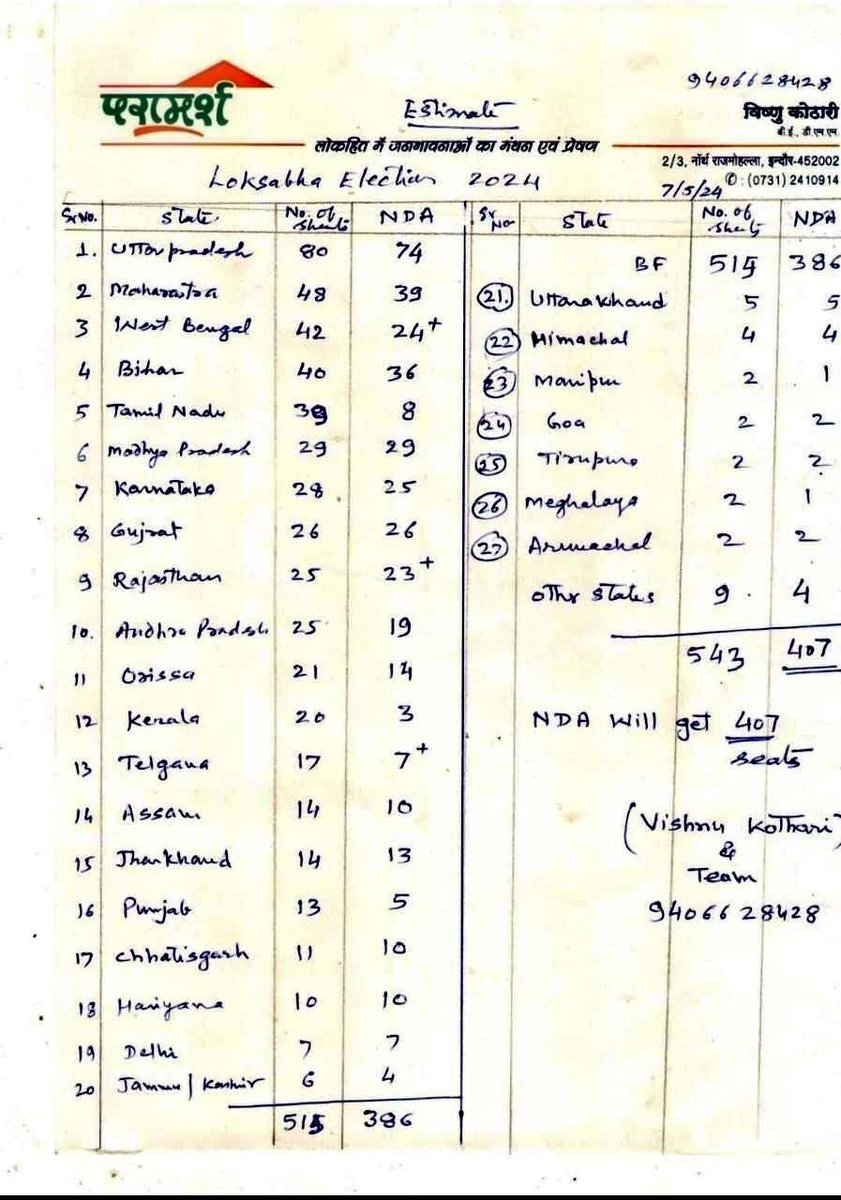 9406628428
परामर्श
Estimate
विष्णु कोठारी
बी.ई., डी.एम.एम.
लोकहित में जनभावनाओं का मंथन एवं प्रेषण
2/3, नॉर्थ राजमोहल्ला, इन्दौर-452002
✆ : (0731) 2410914
Loksabha Election 2024
7/5/24
Sr No. State. No. of Sheats NDA
1. Uttar pradesh 80 74
2 Maharastra 48 39
3 West Bengal 42 24+
4 Bihar 40 36
5 Tamil Nadu 39 8
6 Madhya Pradesh 29 29
7 Karnataka 28 25
8 Gujrat 26 26
9 Rajasthan 25 23+
10. Andhra Pradesh 25 19
11 Orissa 21 14
12 Kerala 20 3
13 Telgana 17 7+
14 Assam 14 10
15 Jharkhand 14 13
16 Punjab 13 5
17 Chhatisgarh 11 10
18 Hariyana 10 10
19 Delhi 7 7
20 Jammu | Kashmir 6 4
515 386
Sr No State No. of Sheats NDA
BF 515 386
21. Uttarakhand 5 5
22 Himachal 4 4
23 Manipur 2 1
24 Goa 2 2
25 Tirupura 2 2
26 Meghalaya 2 1
27 Arunachal 2 2
othr states 9 4
543 407
NDA Will get 407
seats
(Vishnu Kothari)
&
Team
9406628428